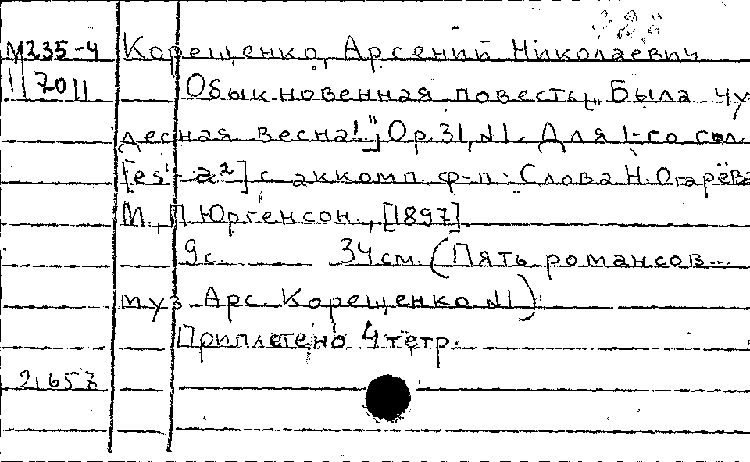 М235-4 Корещенко, Арсений Николаевич
7011 Обыкновенная повесть „Была чу
десная весна!", Op. 31, №1. Для 1-го гол.
[es¹-a²] с аккомп ф-п. Слова Н. Огарёва
М., П. Юргенсон., [1897]
9с. 34см. (Пять романсов...
муз. Арс. Корещенко №1)
Приплетено 4 тетр.